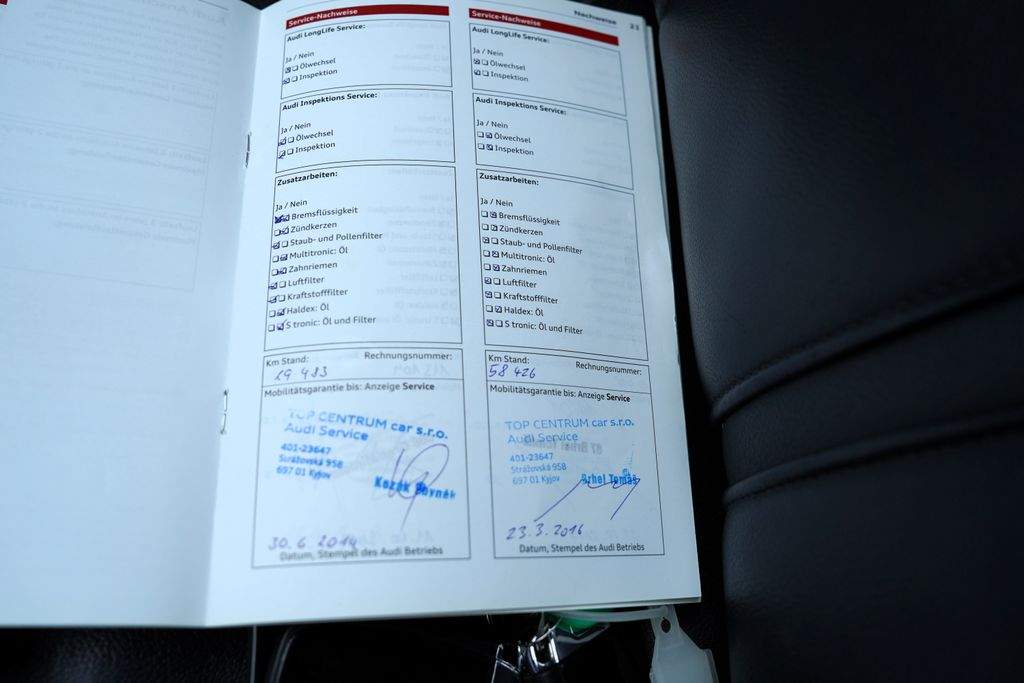 Nachweise 21
Service-Nachweise
Audi LongLife Service:
Ja / Nein
Ölwechsel
Inspektion
Audi Inspektions Service:
Ja / Nein
Ölwechsel
Inspektion
Zusatzarbeiten:
Ja / Nein
Bremsflüssigkeit
Zündkerzen
Staub- und Pollenfilter
Multitronic: Öl
Zahnriemen
Luftfilter
Kraftstofffilter
Haldex: Öl
S tronic: Öl und Filter
Km Stand: Rechnungsnummer:
29 483
Mobilitätsgarantie bis: Anzeige Service
TOP CENTRUM car s.r.o.
Audi Service
401-23647
Strážovská 958
697 01 Kyjov
Kozák Zbyněk
30. 6. 2014
Datum, Stempel des Audi Betriebs
Service-Nachweise
Audi LongLife Service:
Ja / Nein
Ölwechsel
Inspektion
Audi Inspektions Service:
Ja / Nein
Ölwechsel
Inspektion
Zusatzarbeiten:
Ja / Nein
Bremsflüssigkeit
Zündkerzen
Staub- und Pollenfilter
Multitronic: Öl
Zahnriemen
Luftfilter
Kraftstofffilter
Haldex: Öl
S tronic: Öl und Filter
Km Stand: Rechnungsnummer:
58 426
Mobilitätsgarantie bis: Anzeige Service
TOP CENTRUM car s.r.o.
Audi Service
401-23647
Strážovská 958
697 01 Kyjov
Brhel Tomáš
23. 3. 2016
Datum, Stempel des Audi Betriebs